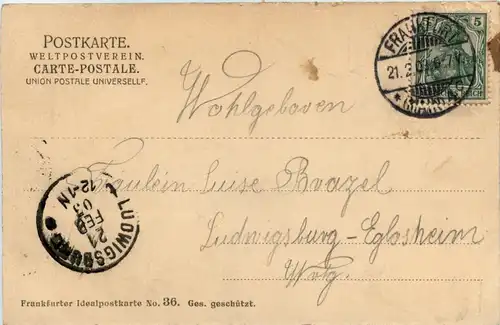 POSTKARTE.
WELTPOSTVEREIN.
CARTE-POSTALE.
UNION POSTALE UNIVERSELLE.
FRANKFURT
21.2.
5
Wohlgeboren
Fräulein Luise Brazel
Ludwigsburg-Eglosheim
Wrtg.
LUDWIGSBURG
21
FEB
03
12-1N
Frankfurter Idealpostkarte No. 36. Ges. geschützt.